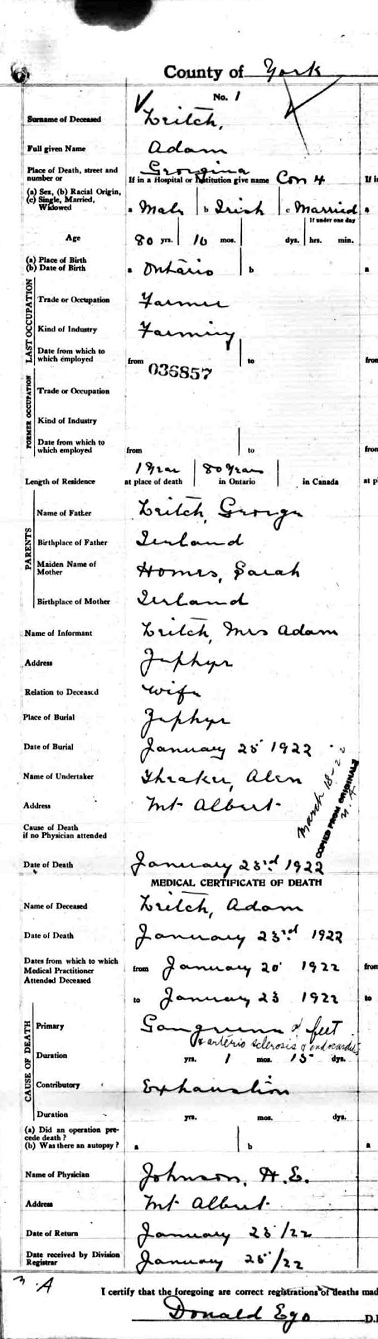 County of York
No. 1
Surname of Deceased Leitch,
Full given Name Adam
Georgina
Place of Death, street and number or If in a Hospital or Institution give name Con 4
(a) Sex, (b) Racial Origin, (c) Single, Married, Widowed a Male b Irish c Married
If under one day
Age 80 yrs. 10 mos. dys. hrs. min.
(a) Place of Birth
(b) Date of Birth a Ontario b
LAST OCCUPATION
Trade or Occupation Farmer
Kind of Industry Farming
Date from which to which employed from to
036857
FORMER OCCUPATION
Trade or Occupation
Kind of Industry
Date from which to which employed from to
1 Year 80 Years
Length of Residence at place of death in Ontario in Canada
PARENTS
Name of Father Leitch, George
Birthplace of Father Ireland
Maiden Name of Mother Homes, Sarah
Birthplace of Mother Ireland
Name of Informant Leitch, Mrs Adam
Address Zephyr
Relation to Deceased Wife
Place of Burial Zephyr
Date of Burial January 25 1922
Name of Undertaker Thraker, Alen
Address Mt Albert
March 18-22
COPIED FROM ORIGINALS
Cause of Death if no Physician attended
Date of Death January 23rd 1922
MEDICAL CERTIFICATE OF DEATH
Name of Deceased Leitch, Adam
Date of Death January 23rd 1922
Dates from which to which Medical Practitioner Attended Deceased from January 20 1922
to January 23 1922
CAUSE OF DEATH
Primary Gangrene of feet
arterio sclerosis & endocarditis
Duration yrs. 1 mos. 15 dys.
Contributory Exhaustion
Duration yrs. mos. dys.
(a) Did an operation precede death?
(b) Was there an autopsy? a b
Name of Physician Johnson, H.E.
Address Mt Albert
Date of Return January 23/22
Date received by Division Registrar January 25/22
I certify that the foregoing are correct registrations of deaths mad
Donald Ego D.